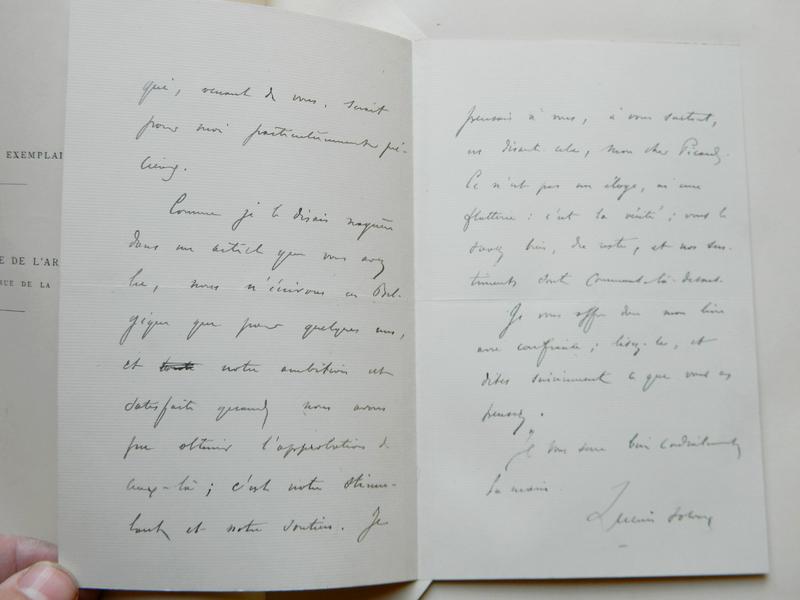 EXEMPLAI
E DE L'AR
RUE DE LA
qui, venant de vous, serait
pour moi particulièrement pré-
cieux.
Comme je le disais naguère
dans un article que vous avez
lu, nous n'écrivons en Bel-
gique que pour quelques uns,
et toute notre ambition est
satisfaite quand nous avons
pu obtenir l'approbation de
ceux-là ; c'est notre stimu-
lant et notre soutien. Je
pensais à vous, à vous surtout,
en disant cela, mon cher Picard.
Ce n'est pas un éloge, ni une
flatterie : c'est la vérité ; vous le
savez bien, du reste, et nos sen-
timents sont communs là-dessus.
Je vous offre donc mon livre
avec confiance ; lisez-le, et
dites sincèrement ce que vous en
pensez.
Je vous serre bien cordialement
la main.
Lucien Solvay